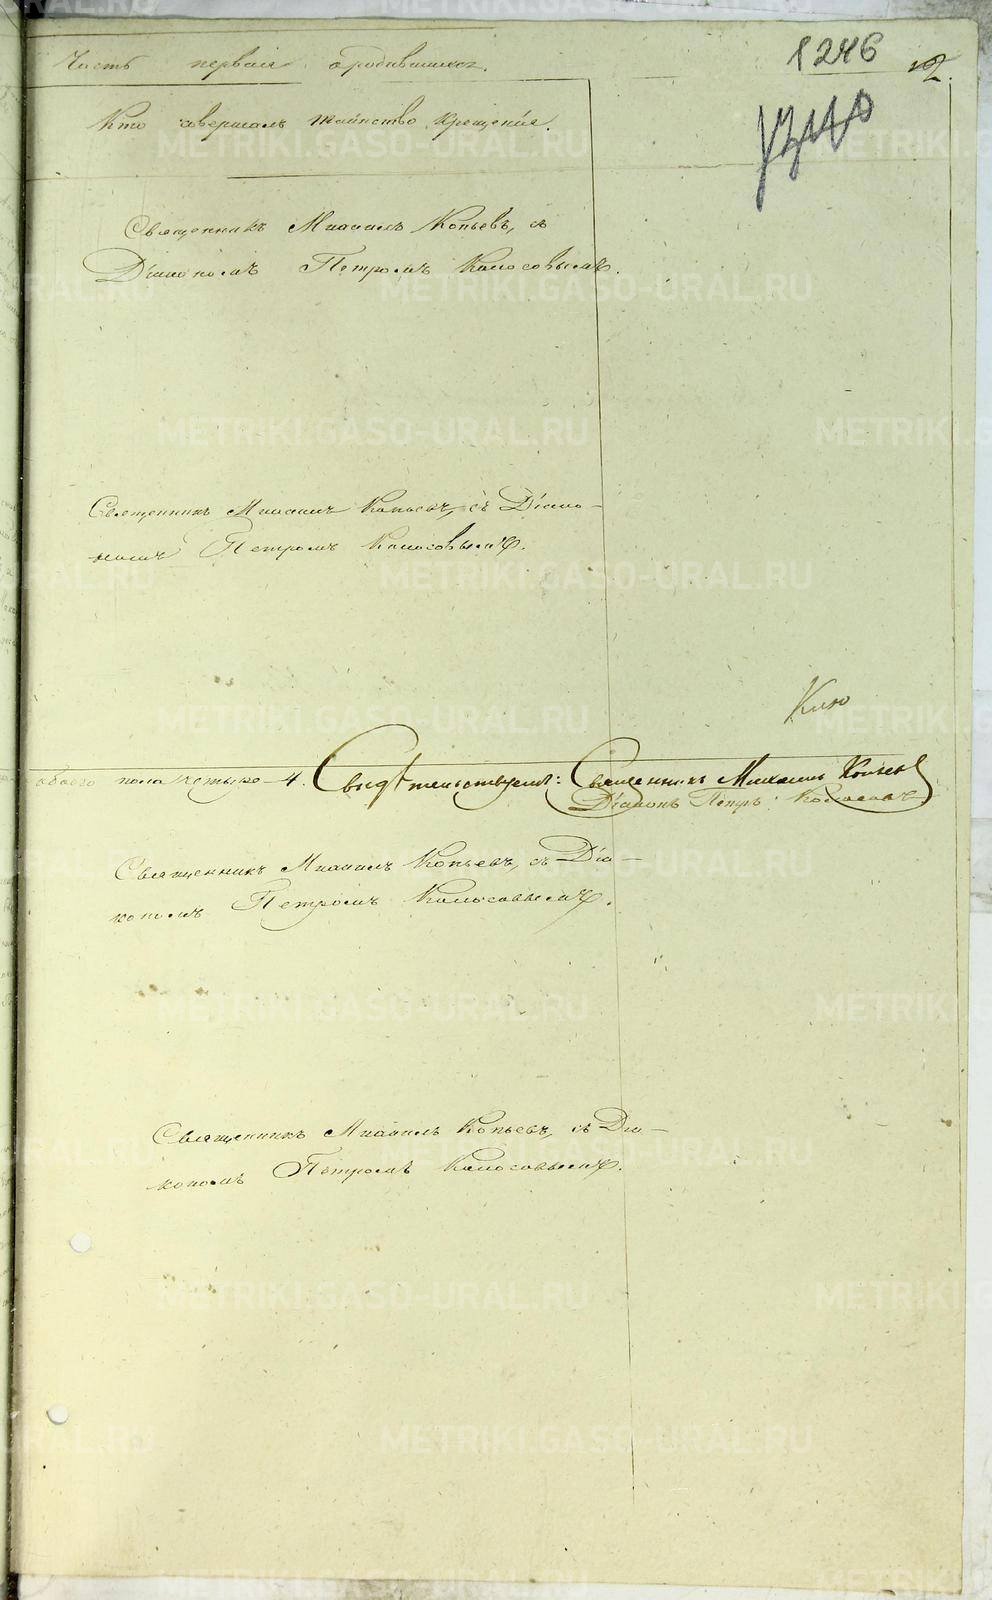 Часть первая о родившихся.
1246
12.
Кто совершалъ таинство крещенія.
Священникъ Михаилъ Копьевъ, съ
Діакономъ Петромъ Колосовымъ.
Священникъ Михаилъ Копьевъ, съ Діако-
номъ Петромъ Колосовымъ.
обоего пола четыре – 4. Свидѣтельствуемъ: Священникъ Михаилъ Копьевъ
Діаконъ Петръ Колосовъ
Священникъ Михаилъ Копьевъ, съ Діа-
кономъ Петромъ Колосовымъ.
Священникъ Михаилъ Копьевъ, съ Діа-
кономъ Петромъ Колосовымъ.
METRIKI.GASO-URAL.RU